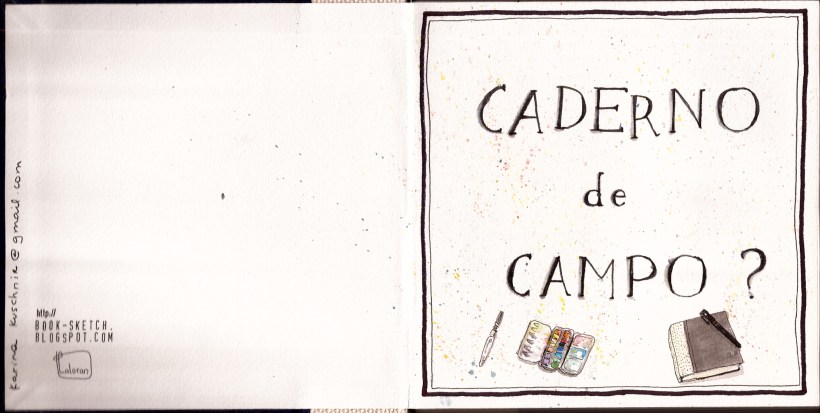 karina kuschnir @ gmail.com
http://
BOOK-SKETCH.
BLOGSPOT.COM
Laloran
CADERNO
de
CAMPO ?